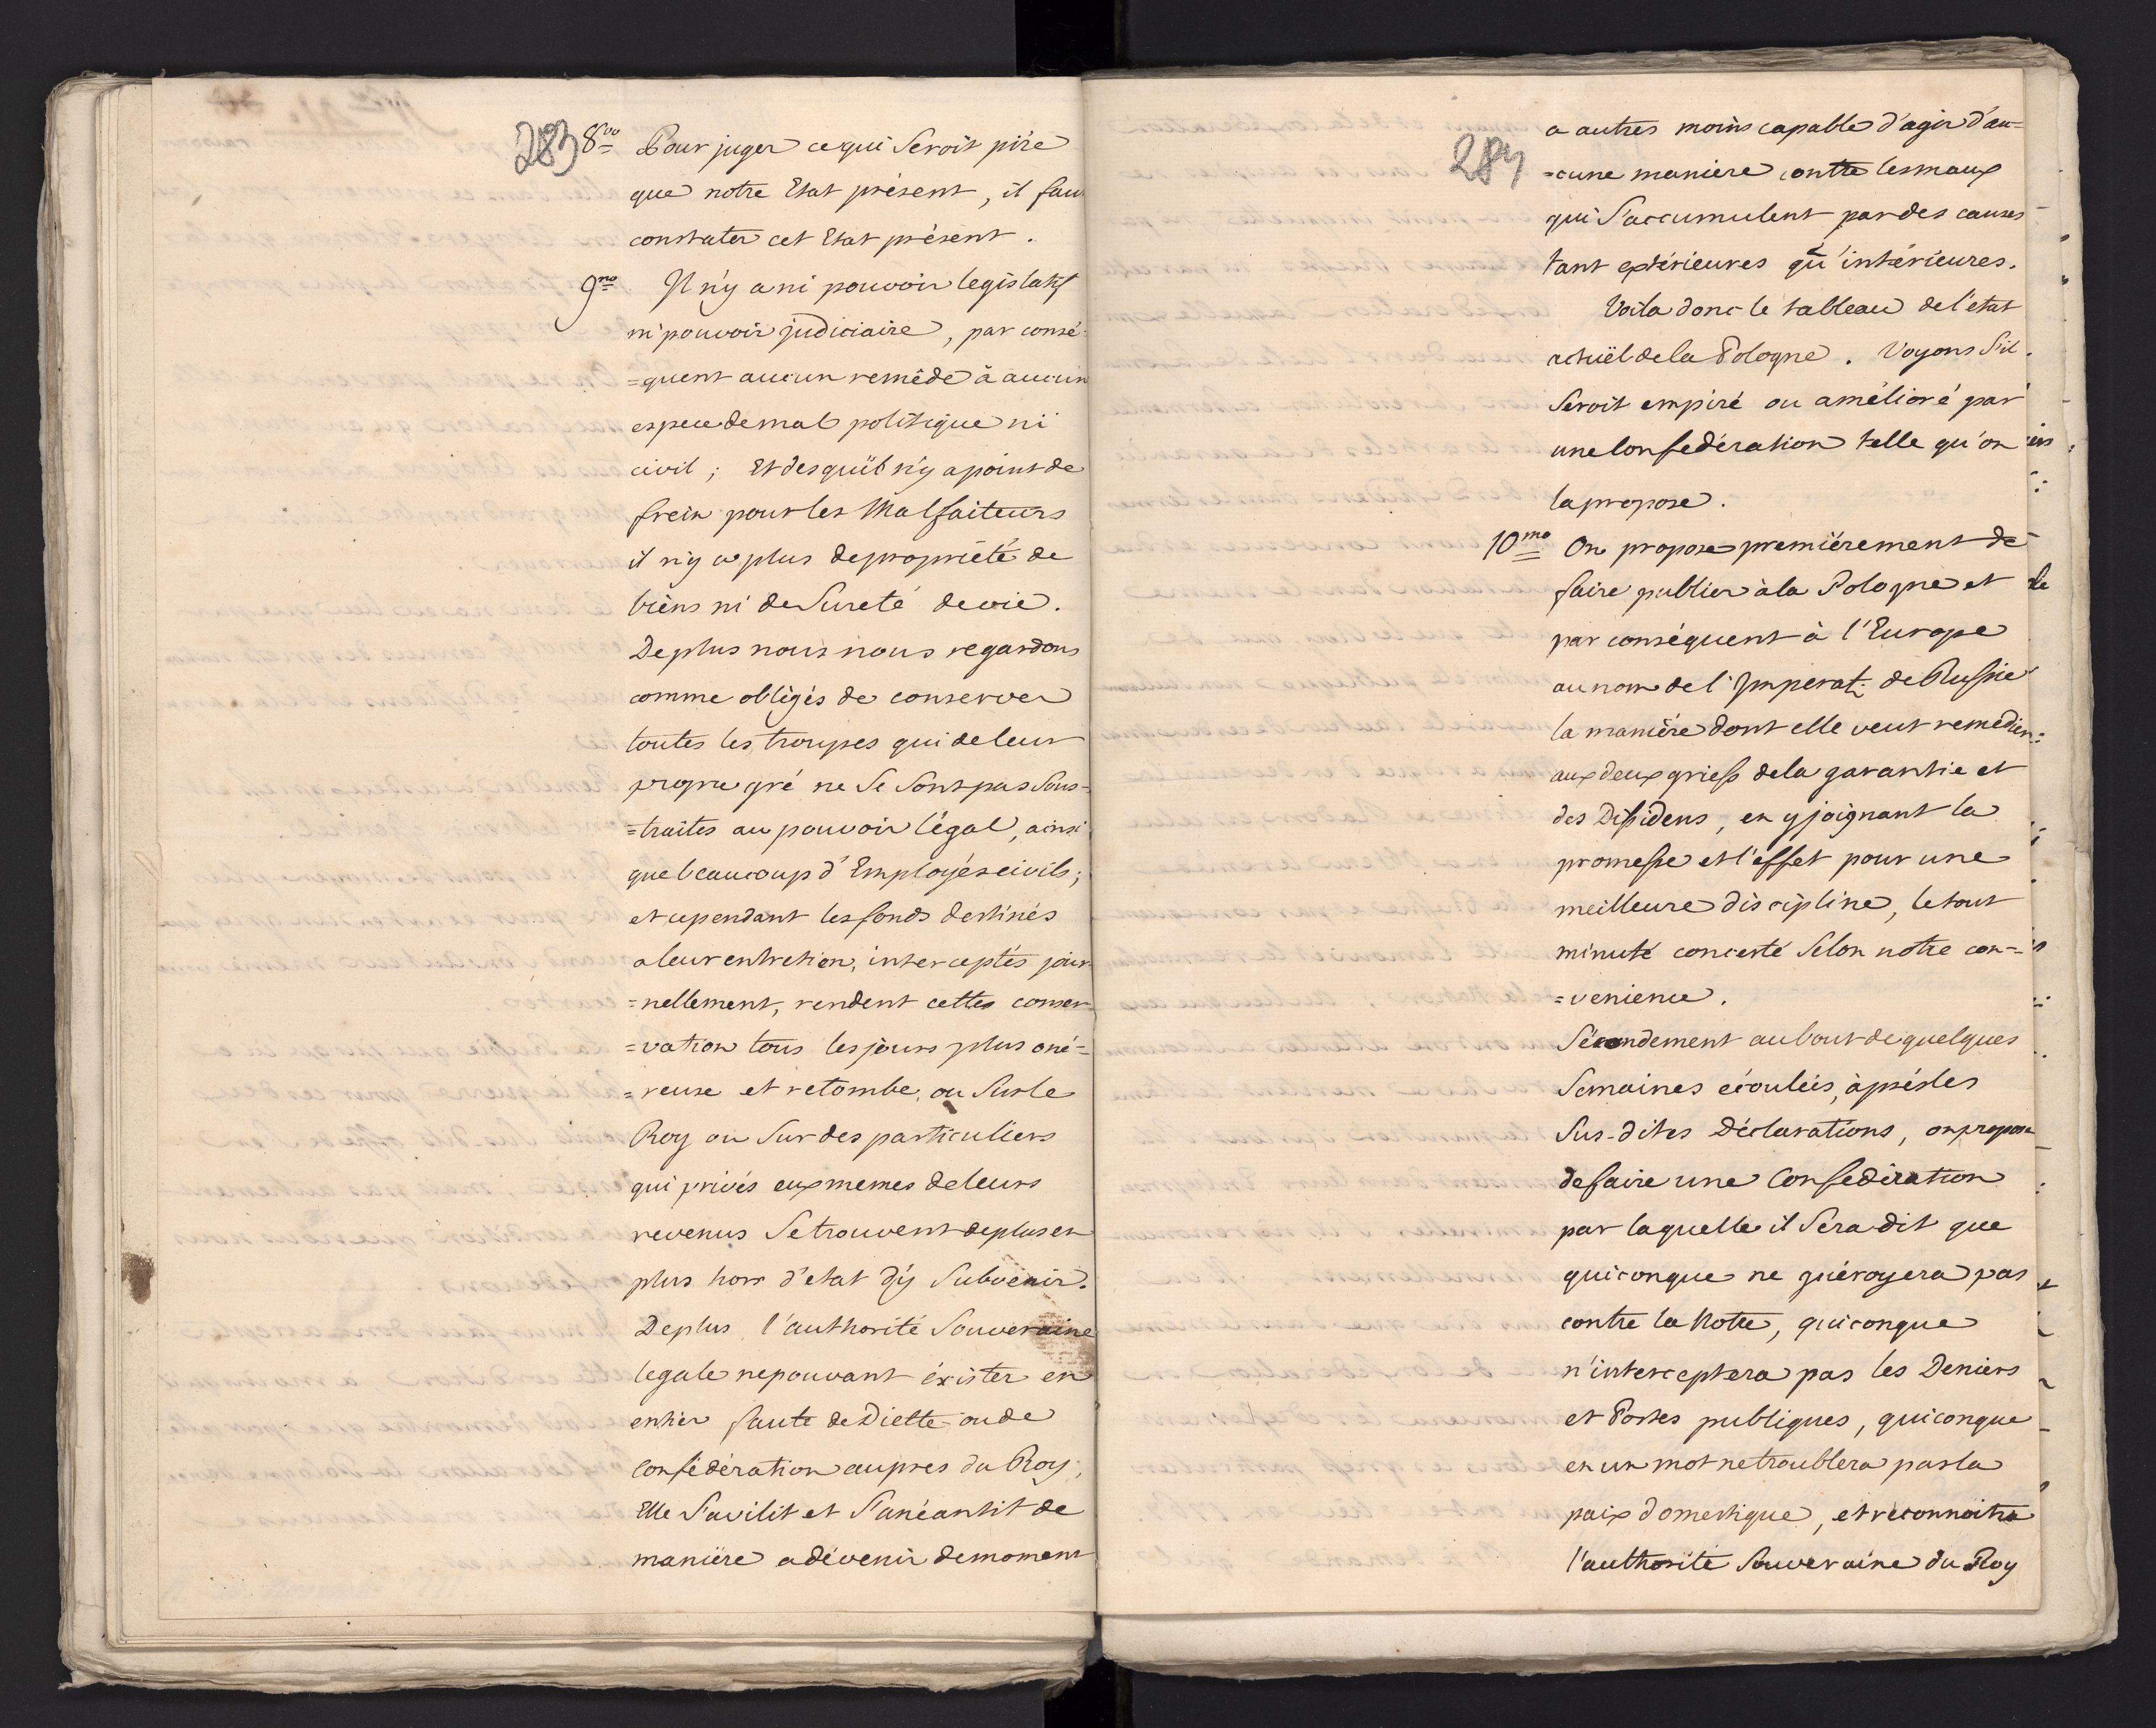 283 8vo Pour juger ce qui Seroit pire
que notre Etat présent, il fau
constater cet Etat présent.
9no Il n'y a ni pouvoir legislatif
ni pouvoir judiciaire, par consé-
=quent aucun remêde à aucun
espece de mal politique ni
civil; Et des quil n'y a point de
frein pour les Malfaiteurs
il n'y a plus de propriété de
biens ni de Sureté de vie.
De plus nous nous regardons
comme obligés de conserver
toutes les troupes qui de leur
propre gré ne Se Sont pas Sous-
=traites au pouvoir légal, ainsi
que beaucoup d'Employés civils;
et cependant les fonds destinés
a leur entretien, interceptés jour
=nellement, rendent cettes conser
=vation tous les jours plus oné=
=reuse et retombe, ou Sur le
Roy ou Sur des particuliers
qui privés eux memes de leurs
revenus Se trouvent de plus en
plus hors d'etat d'y Subvenir.
De plus l'authorité Souveraine
legale ne pouvant éxister en
entier faute de Diette ou de
Confédération aupres du Roy;
Elle S'avilit et S'anéantit de
manière a dévenir de moment
284
a autres moins capable d'agir d'au=
=cune maniere contre les maux
qui S'accumulent par des causes
tant extérieures qu'intérieures.
Voila donc le tableau de l'etat
actuël de la Pologne. Voyons S'il
Seroit empiré ou amélioré par
une Confedération telle qu'on
la propose.
10mo On propose premiérement de
faire publier à la Pologne et
par conséquent à l'Europe
au nom de l'Imperat: de Russie
la manière dont elle veut remedier
aux deux griefs de la garantie et
des Dissidens, en y joignant la
promesse et l'effet pour une
meilleure discipline, le tout
minuté concerté Selon notre con=
=venience.
Sécondement au bout de quelques
Semaines écoulées, àprés les
Sus-dites Déclarations, on propose
de faire une Confedération
par laquelle il Sera dit que
quiconque ne guéroyera pas
contre la Notre, quiconque
n'interceptera pas les Deniers
et Postes publiques, quiconque
en un mot ne troublera pas la
paix domestique, et reconnoitra
l'authorité Souveraine du Roy